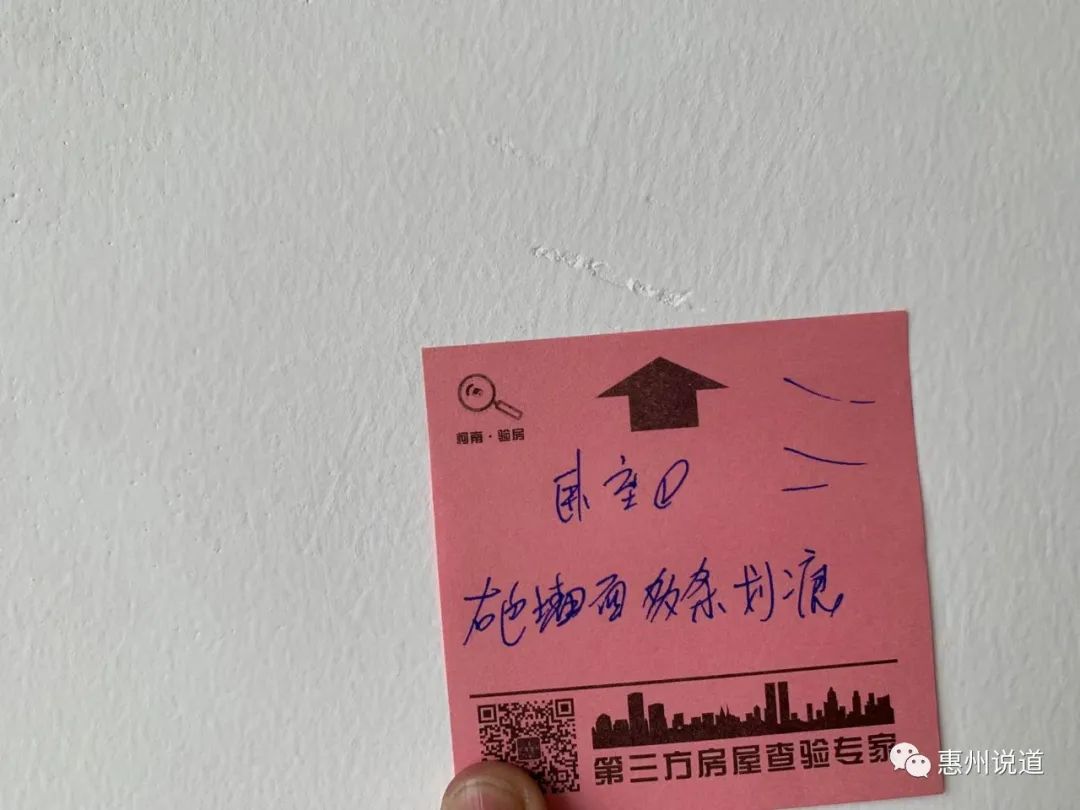 柯南·验房
卧室②
右也墙面多条划痕
第三方房屋查验专家
惠州说道